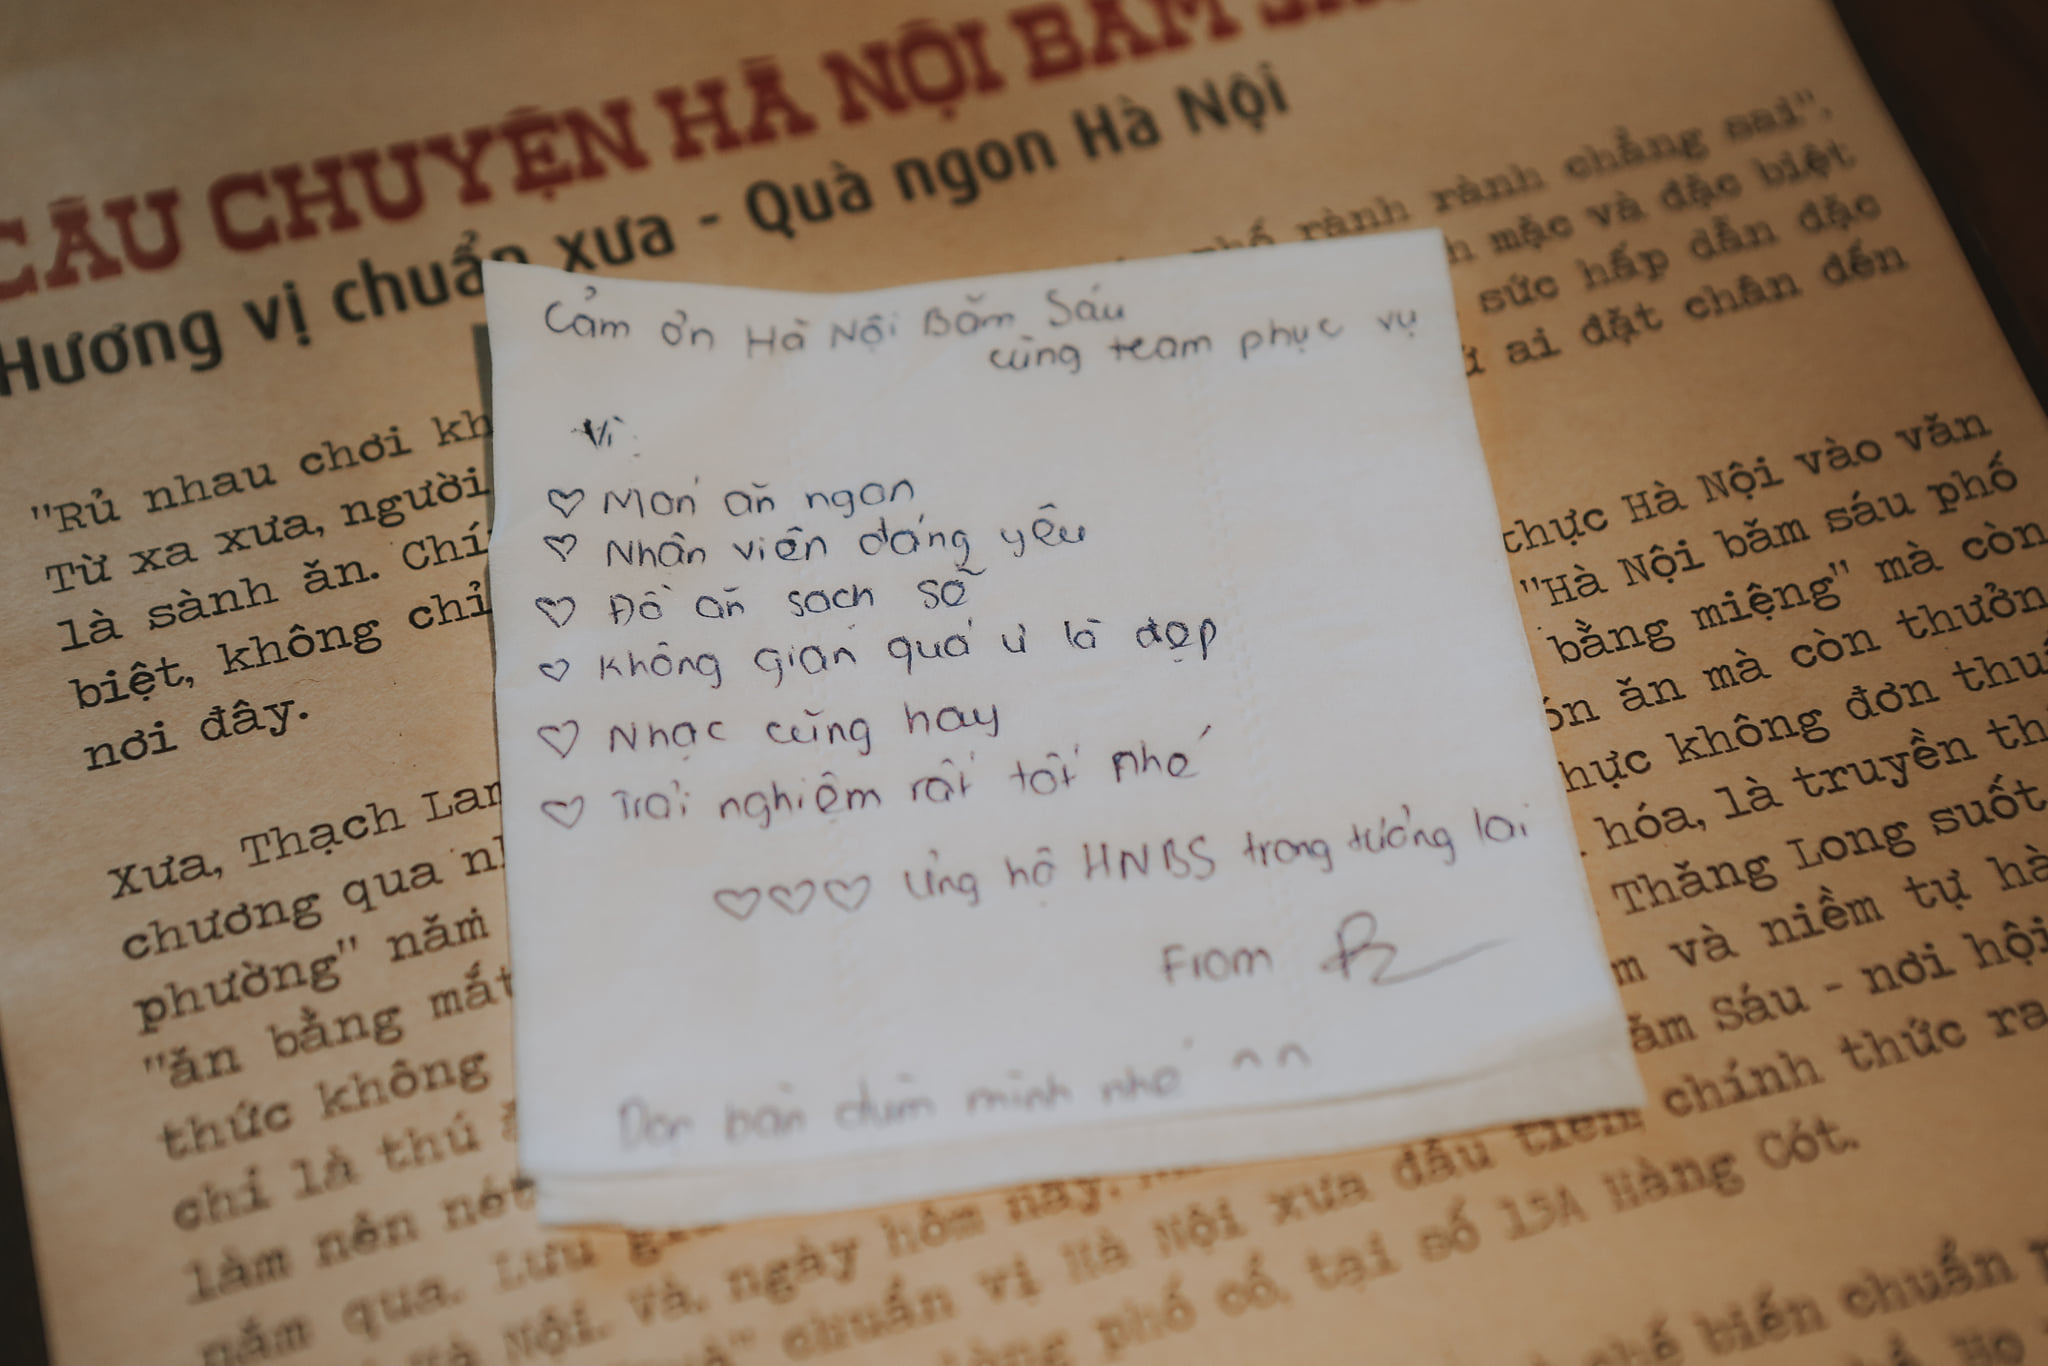 CÂU CHUYỆN HÀ NỘI BĂM
Hương vị chuẩn xưa - Quà ngon Hà Nội
"Rủ nhau chơi
phố rành rành chẳng sai".
Từ xa xưa, người
mặc và đặc biệt
là sành ăn. Chí
sức hấp dẫn đặc
biệt, không chỉ
ai đặt chân đến
nơi đây.
Xưa, Thạch Lam
thực Hà Nội vào văn
chương qua
"Hà Nội băm sáu phố
phường" năm
bằng miệng" mà còn
"ăn bằng mắt
ăn mà còn thưởn
thức không
không đơn thu
chỉ là thú
hóa, là truyền th
làm nên nét
Thăng Long suốt
năm qua. Lưu
và niềm tự hà
Hà Nội. Và, ngày hôm nay,
Sáu - nơi hội
chuẩn vị Hà Nội xưa đầu tiên chính thức ra
phố cổ, tại số 13A Hàng Cót.
chế biến chuẩn
Cảm ơn Hà Nội Băm Sáu
cùng team phục vụ
Vì:
♡ Món ăn ngon
♡ Nhân viên đáng yêu
♡ Đồ ăn sạch sẽ
♡ Không gian quá ư là đẹp
♡ Nhạc cũng hay
♡ Trải nghiệm rất tốt nhé
♡♡♡ Ủng hộ HNBS trong tương lai
From
Dọn bàn dùm mình nhé ^^